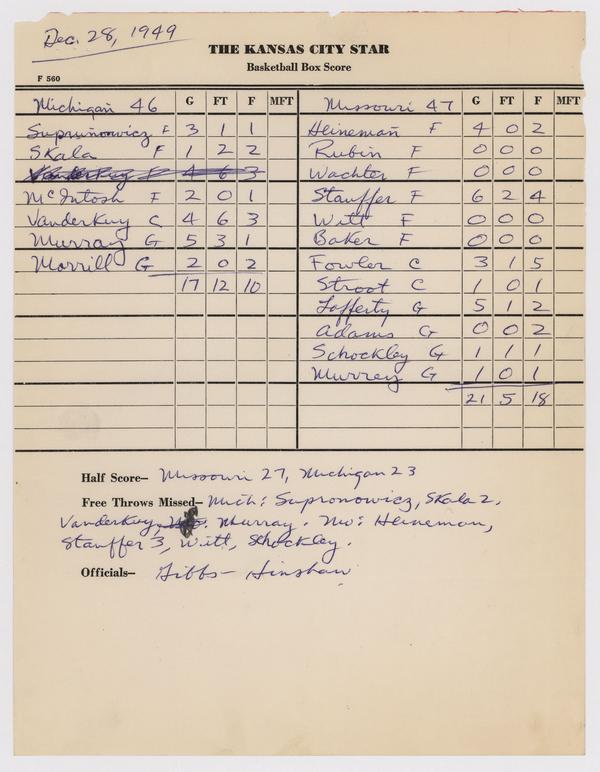 Dec. 28, 1949
THE KANSAS CITY STAR
Basketball Box Score
F 560
Michigan 46 G FT F MFT Missouri 47 G FT F MFT
Suprunowicz F 3 1 1 Heineman F 4 0 2
Skala F 1 2 2 Rubin F 0 0 0
VanderKuy F 4 6 3 Wachter F 0 0 0
McIntosh F 2 0 1 Stauffer F 6 2 4
VanderKuy C 4 6 3 Witt F 0 0 0
Murray G 5 3 1 Baker F 0 0 0
Morrill G 2 0 2 Fowler C 3 1 5
17 12 10 Stroot C 1 0 1
Lafferty G 5 1 2
Adams G 0 0 2
Schockley G 1 1 1
Murrey G 1 0 1
21 5 18
Half Score— Missouri 27, Michigan 23
Free Throws Missed— Mich: Supronowicz, Skala 2,
VanderKuy, Murray. Mo: Heineman,
Stauffer 3, Witt, Schockley.
Officials— Gibbs — Hinshaw